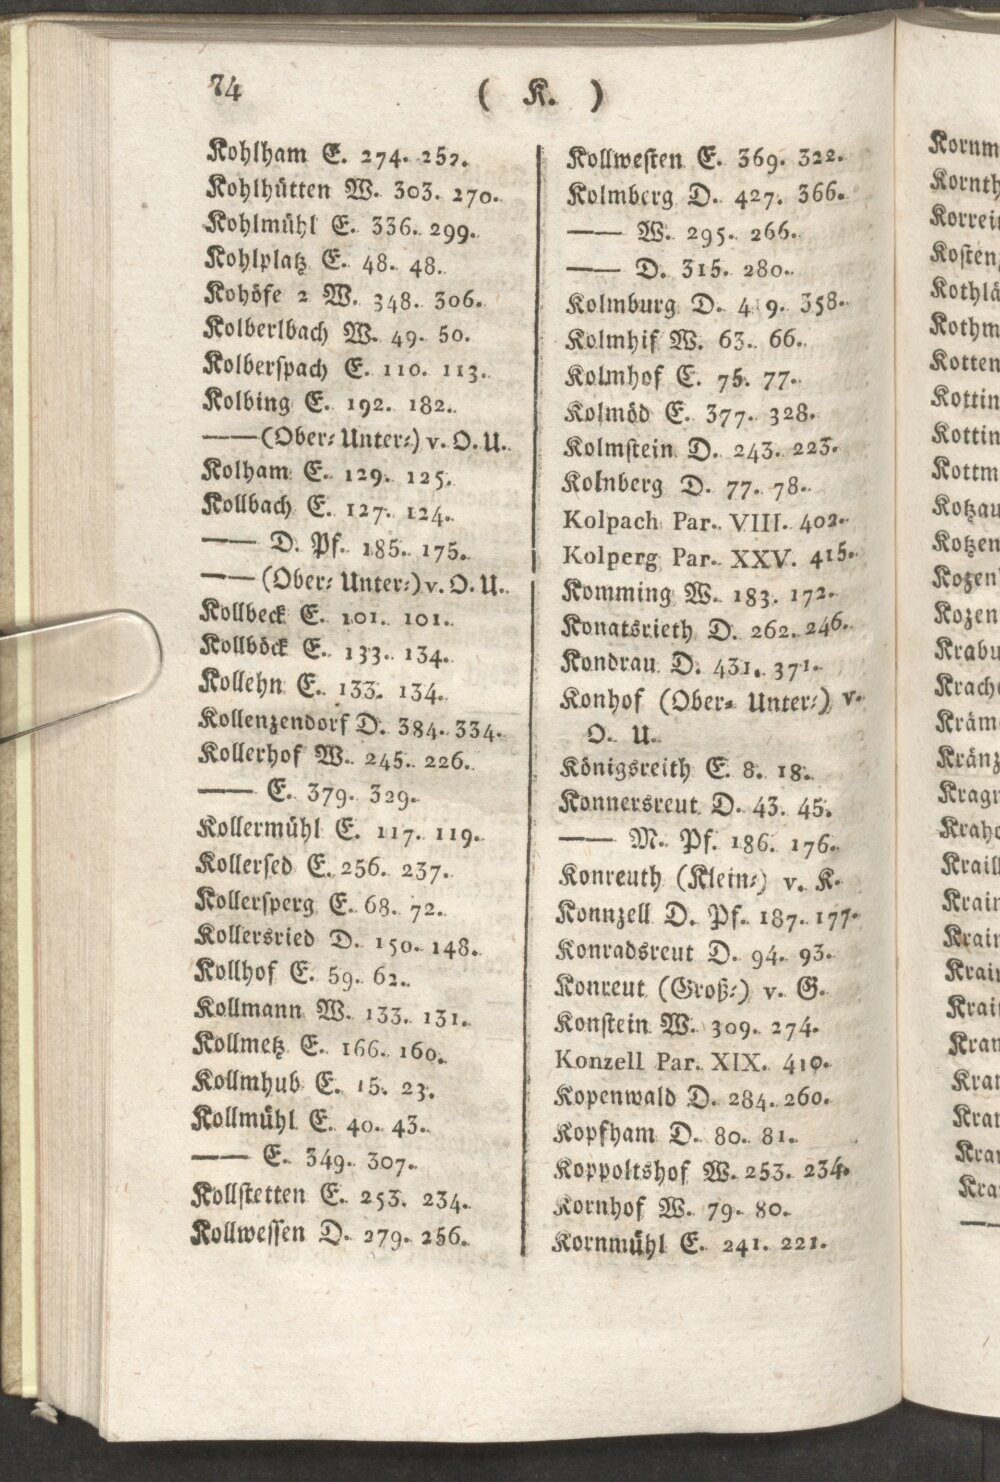 74
( K. )
Kohlham E. 274. 257.
Kohlhütten W. 303. 270.
Kohlmühl E. 336. 299.
Kohlplatz E. 48. 48.
Kohöfe 2 W. 348. 306.
Kolberlbach W. 49. 50.
Kolberspach E. 110. 113.
Kolbing E. 192. 182.
—— (Ober⸗ Unter⸗) v. O. U.
Kolham E. 129. 125.
Kollbach E. 127. 124.
—— D. Pf. 185. 175.
—— (Ober⸗ Unter⸗) v. O. U.
Kollbeck E. 101. 101.
Kollböck E. 133. 134.
Kollehn E. 133. 134.
Kollenzendorf D. 384. 334.
Kollerhof W. 245. 226.
—— E. 379. 329.
Kollermühl E. 117. 119.
Kollersed E. 256. 237.
Kollersperg E. 68. 72.
Kollersried D. 150. 148.
Kollhof E. 59. 62.
Kollmann W. 133. 131.
Kollmetz E. 166. 160.
Kollmhub E. 15. 23.
Kollmühl E. 40. 43.
—— E. 349. 307.
Kollstetten E. 253. 234.
Kollwessen D. 279. 256.
Kollwesten E. 369. 322.
Kolmberg D. 427. 366.
—— W. 295. 266.
—— D. 315. 280.
Kolmburg D. 419. 358.
Kolmhif W. 63. 66.
Kolmhof E. 75. 77.
Kolmöd E. 377. 328.
Kolmstein D. 243. 223.
Kolnberg D. 77. 78.
Kolpach Par. VIII. 402.
Kolperg Par. XXV. 415.
Komming W. 183. 172.
Konatsrieth D. 262. 246.
Kondrau D. 431. 371.
Konhof (Ober⸗ Unter⸗) v.
O. U.
Königsreith E. 8. 18.
Konnersreut D. 43. 45.
—— M. Pf. 186. 176.
Konreuth (Klein⸗) v. K.
Konnzell D. Pf. 187. 177.
Konradsreut D. 94. 93.
Konreut (Groß⸗) v. G.
Konstein W. 309. 274.
Konzell Par. XIX. 410.
Kopenwald D. 284. 260.
Kopfham D. 80. 81.
Koppoltshof W. 253. 234.
Kornhof W. 79. 80.
Kornmühl E. 241. 221.